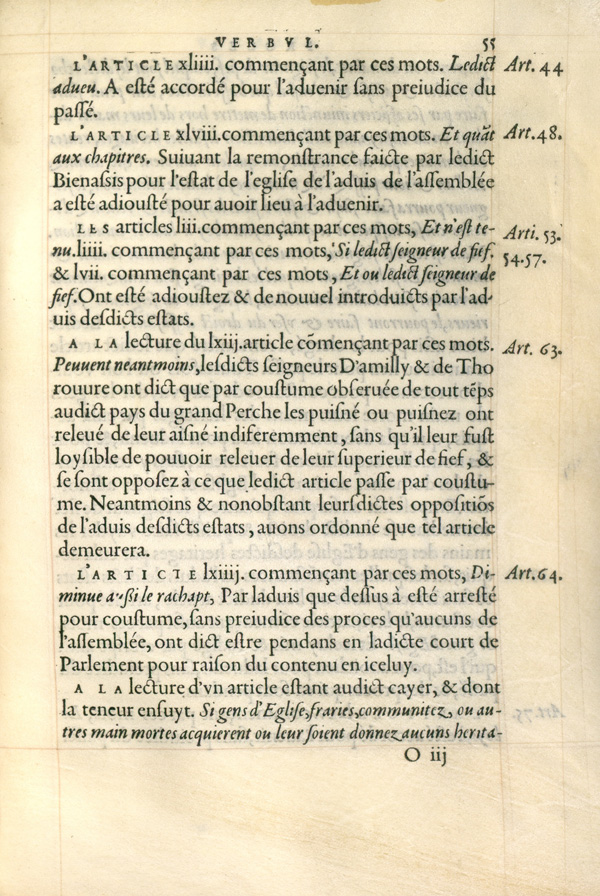 VERBVL. 55
L'ARTICLE xliiii. commençant par ces mots. Ledict Art. 44
adueu. A esté accordé pour l'aduenir sans preiudice du
passé.
L'ARTICLE xlviii. commençant par ces mots. Et quāt Art. 48.
aux chapitres. Suiuant la remonstrance faicte par ledict
Bienassis pour l'estat de l'eglise de l'aduis de l'assemblée
a esté adiousté pour auoir lieu à l'aduenir.
LES articles liii. commençant par ces mots, Et n'est te- Arti. 53.
nu. liiii. commençant par ces mots, Si ledict seigneur de fief. 54.57.
& lvii. commençant par ces mots, Et ou ledict seigneur de
fief. Ont esté adioustez & de nouuel introduicts par l'ad-
uis desdicts estats.
A LA lecture du lxiij. article cōmençant par ces mots. Art. 63.
Peuuent neantmoins, lesdicts seigneurs D'amilly & de Tho
rouure ont dict que par coustume obseruée de tout tēps
audict pays du grand Perche les puisné ou puisnez ont
releué de leur aisné indiferemment, sans qu'il leur fust
loysible de pouuoir releuer de leur superieur de fief, &
se sont opposez à ce que ledict article passe par coustu-
me. Neantmoins & nonobstant leursdictes oppositiōs
de l'aduis desdicts estats, auons ordonné que tel article
demeurera.
L'ARTICTE lxiiij. commençant par ces mots, Di- Art. 64.
minue aussi le rachapt, Par laduis que dessus à esté arresté
pour coustume, sans preiudice des proces qu'aucuns de
l'assemblée, ont dict estre pendans en ladicte court de
Parlement pour raison du contenu en iceluy.
A LA lecture d'vn article estant audict cayer, & dont
la teneur ensuyt. Si gens d'Eglise, fraries, communitez, ou au-
tres main mortes acquierent ou leur soient donnez aucuns herita-
O iij